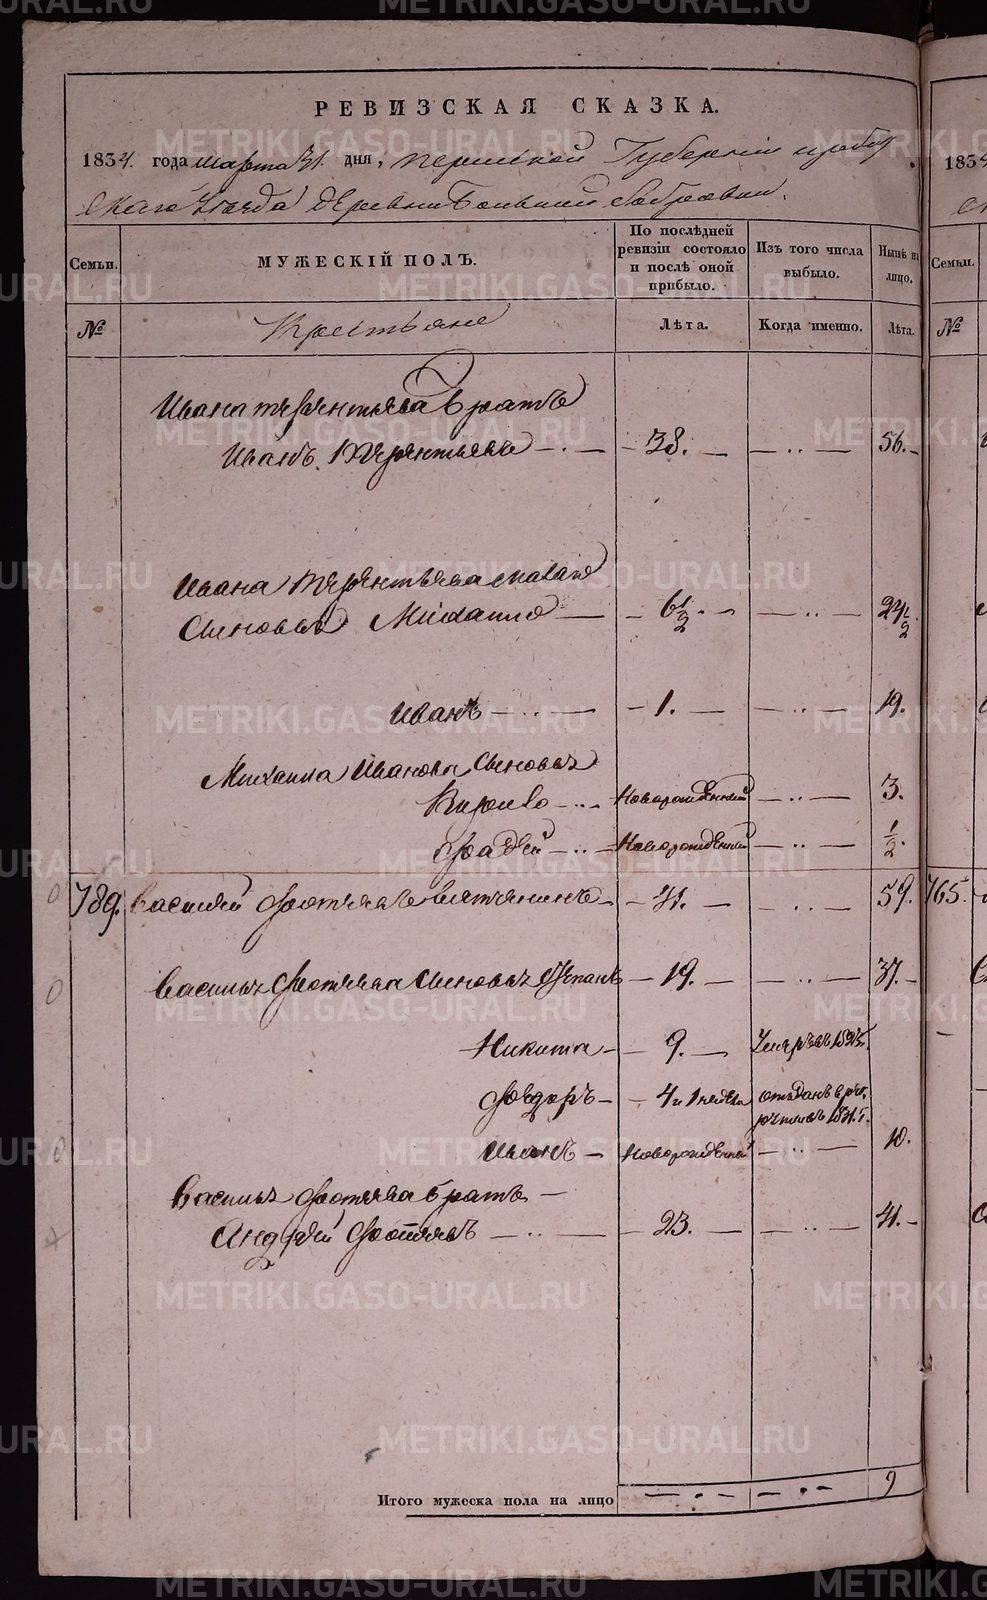 РЕВИЗСКАЯ СКАЗКА.
1834. года марта 31. дня, Пермской Губернии Ирбит
скаго Уезда деревни Большой Бобровки.
Семьи.
МУЖЕСКІЙ ПОЛЪ.
По послѣдней ревизіи состояло и послѣ оной прибыло.
Изъ того числа выбыло.
Нынѣ на лицо.
№
Крестьяне
Лѣта.
Когда именно.
Лѣта.
Ивана Терентьева братъ
Иванъ Терентьевъ — 38. — 56.
Ивана Терентьева
Сыновья Михаило — 6 1/2. — 24 1/2
Иванъ — 1. — 19.
Михаила Иванова Сыновья
Кирило — Новорожденный — 3.
Фадей — Новорожденный — 1/2.
789. Василий Фотеевъ Вятчининъ — 41. — 59.
Василья Фотеева Сыновья Степанъ — 19. — 37.
Никита — 9. — Умеръ въ 1825
Федоръ — 4 и 1 неделя отданъ в рек
рѣты въ 1831 г.
Иванъ — Новорожденный — 10.
Василья Фотеева братъ —
Андрей Фотеевъ — 23. — 41.
Итого мужеска пола на лицо — 9
1834
Семьи.
№
765.
METRIKI.GASO-URAL.RU